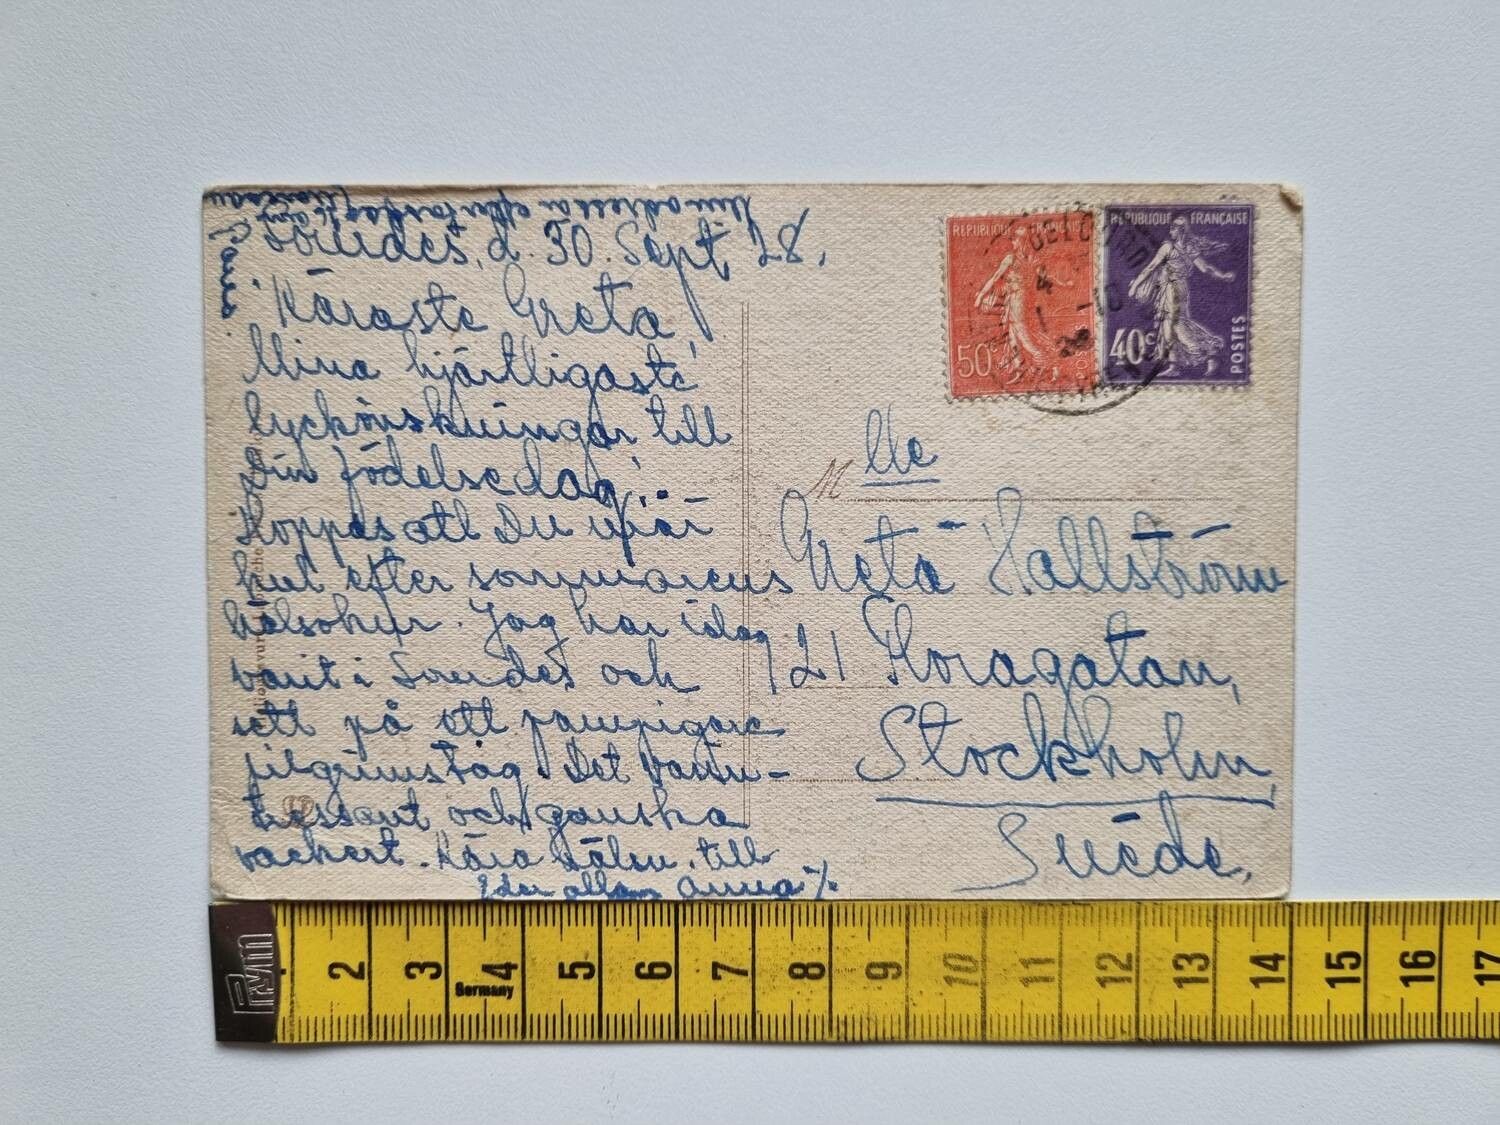 Min adress är efter
Paris.
Lourdes, d. 30. Sept. 28.
Käraste Greta,
Mina hjärtligaste
lyckönskningar till
Din födelsedag!
Hoppas att Du mår
kut efter sommarens
hälsokur. Jag har idag
varit i Lourdes och
sett på ett
pilgrimståg. Det var in-
tressant och ganska
vackert. Kära häls. till
Eder allam Anna
REPUBLIQUE FRANÇAISE
50c
POSTES
REPUBLIQUE FRANÇAISE
40c
POSTES
4
1 -10
28
M
lle
Greta Hallström
121 Floragatan,
Stockholm
Suède,
2 3 4 5 6 7 8 9 10 11 12 13 14 15 16 17
Germany